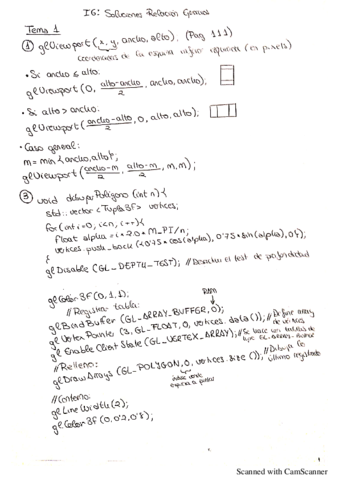 IG: Soluciones Relación Genaro
Tema 1
① glViewport (x, y, ancho, alto). (Pag 111)
coordenadas de la esquina inferior izquierda (en pixels)
· Si ancho ≤ alto:
glViewport (0, alto-ancho/2, ancho, ancho);
· Si alto > ancho:
glViewport (ancho-alto/2, 0, alto, alto);
· Caso general:
m = min {ancho, alto};
glViewport (ancho-m/2, alto-m/2, m, m);
③ void dibujarPoligono (int n) {
std::vector <Tupla3f> vertices;
for (int i=0; i<n; i++) {
float alpha = i*2.0*M_PI/n;
vertices.push_back ({0.75*cos(alpha), 0.75*sin(alpha), 0});
}
glDisable (GL_DEPTH_TEST); // Desactiva el test de profundidad
glColor3f (0,1,1);
// Registrar tabla:
glBindBuffer (GL_ARRAY_BUFFER, 0);
glVertexPointer (3, GL_FLOAT, 0, vertices.data()); // Define array de vertices
glEnableClientState (GL_VERTEX_ARRAY);
// Relleno:
glDrawArrays (GL_POLYGON, 0, vertices.size()); // Dibuja lo último registrado
// Contorno:
glLineWidth (2);
glColor3f (0, 0'2, 0'8);
1
Scanned with CamScanner